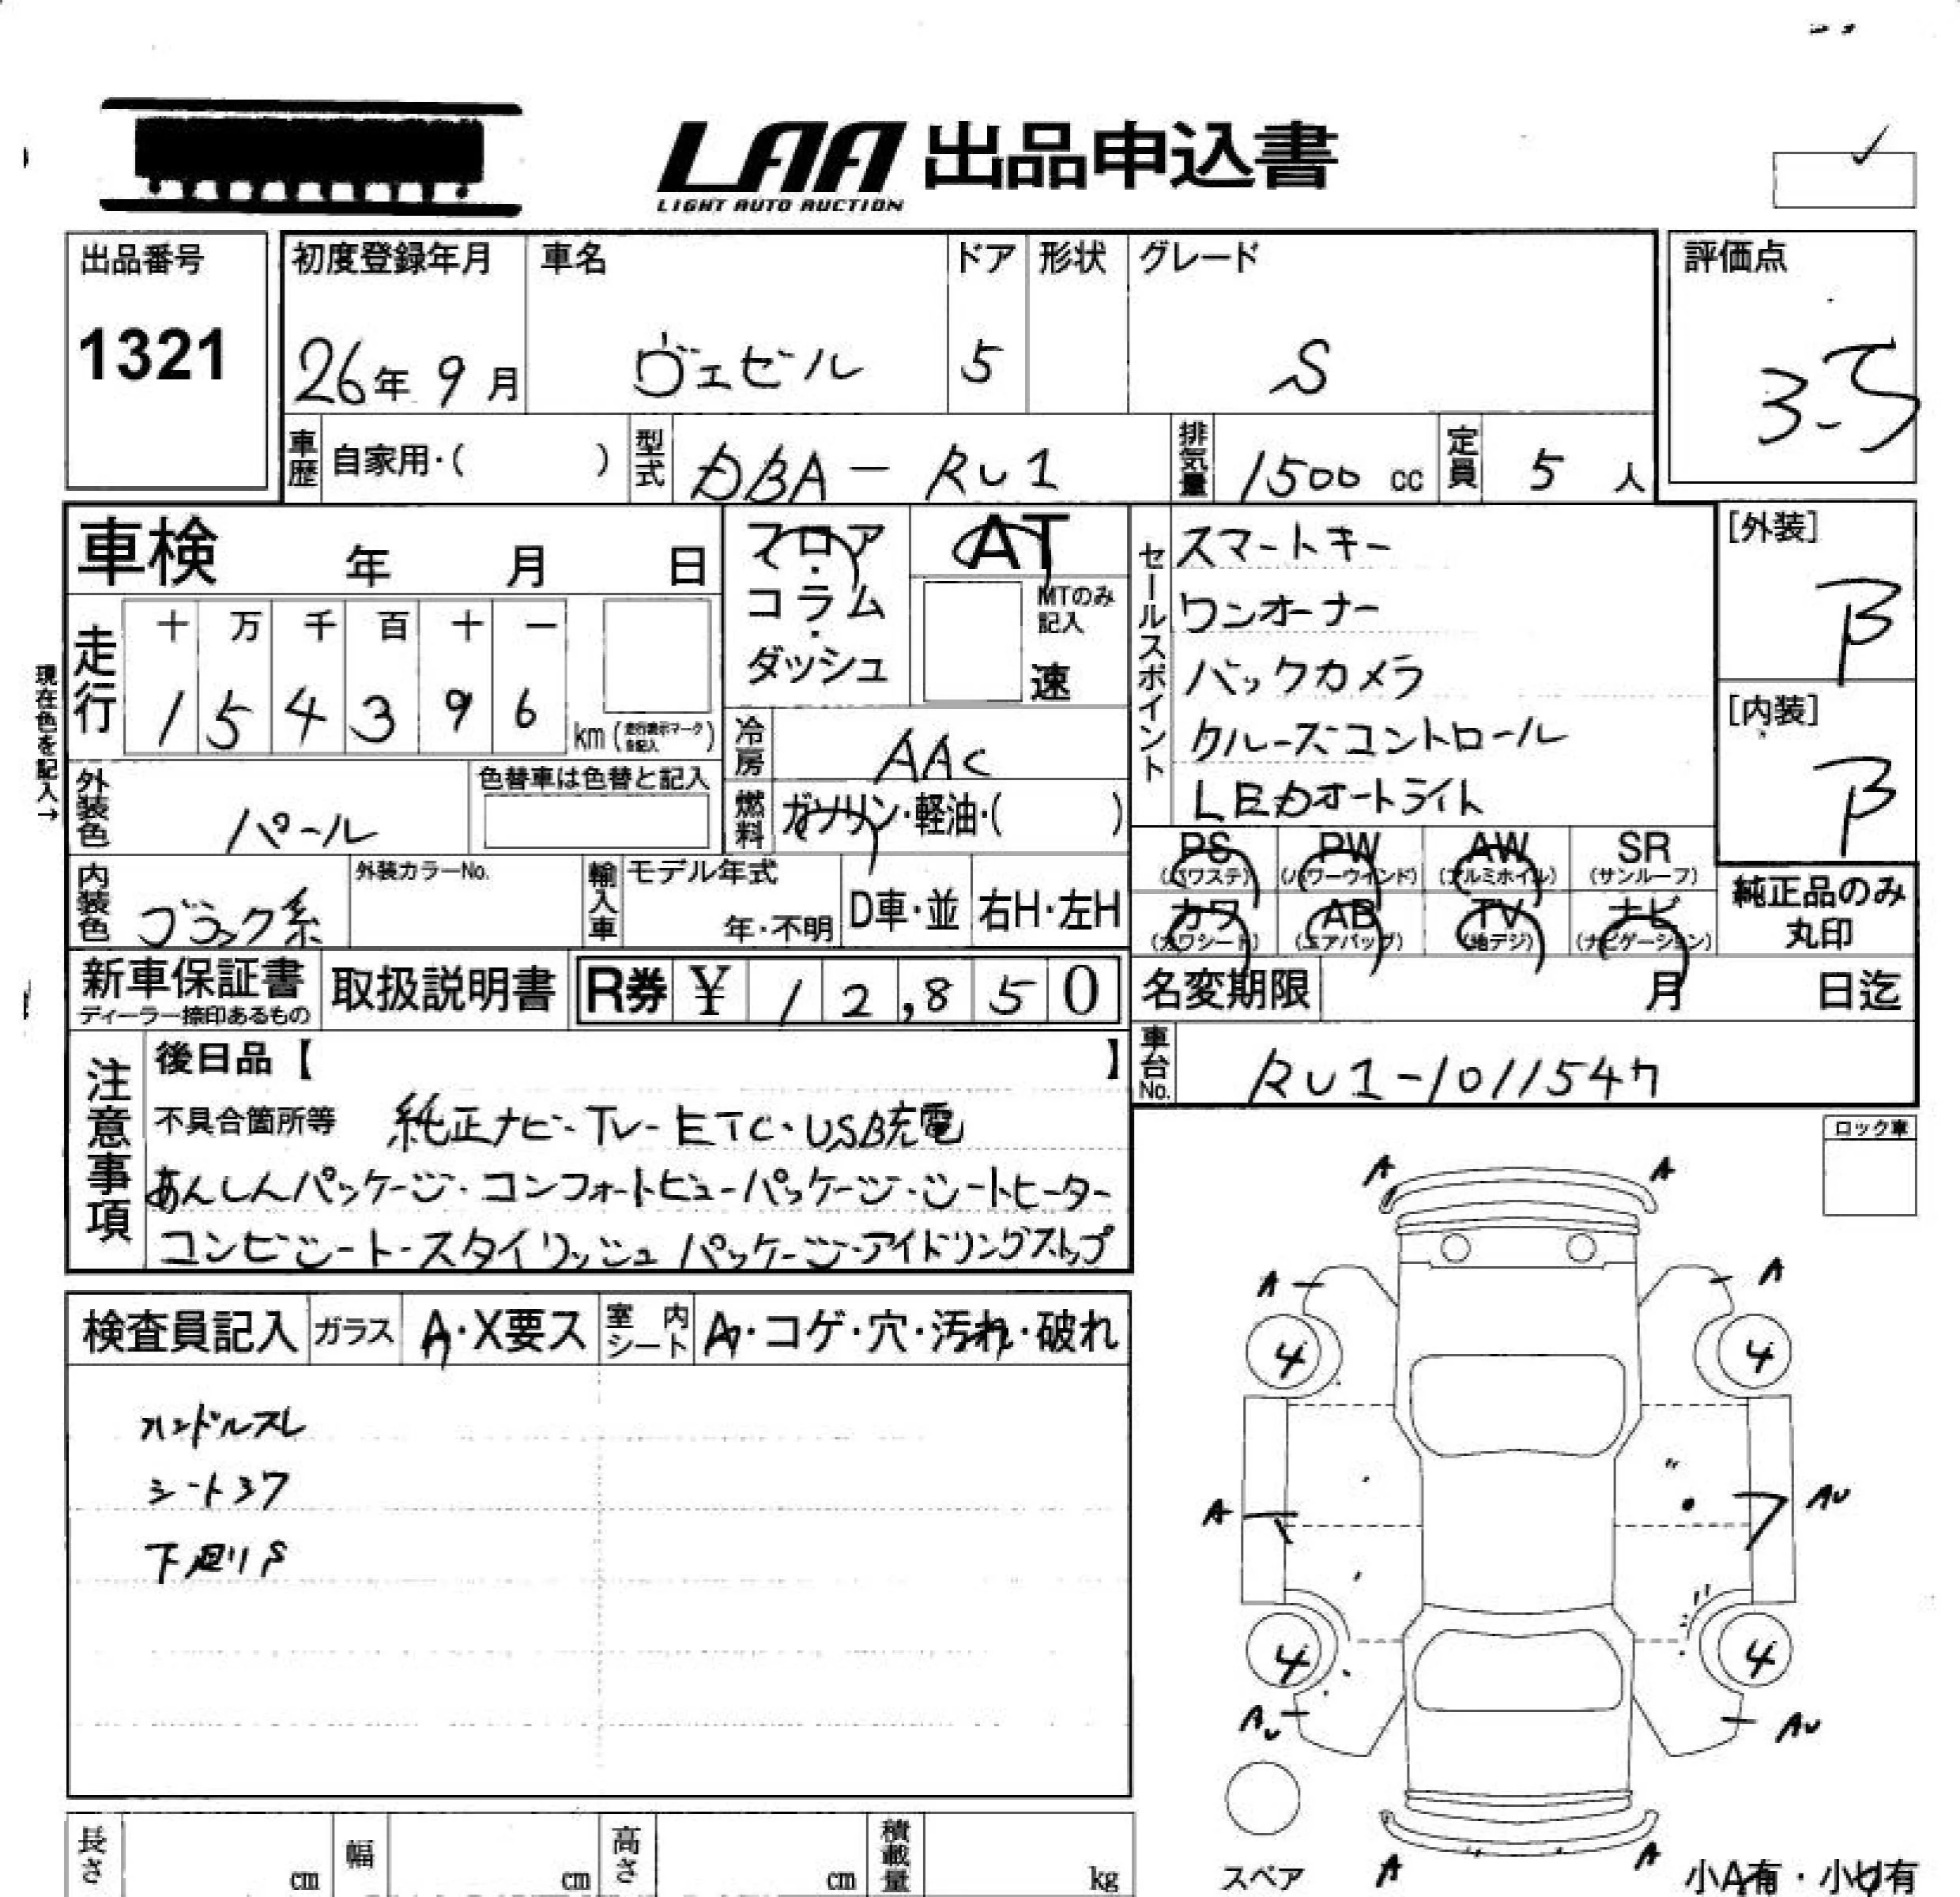 LAA 出品申込書
LIGHT AUTO AUCTION
出品番号
1321
初度登録年月
26年 9月
車名
ヴェゼル
ドア
5
形状
グレード
S
評価点
3.5
車歴 自家用・( )
型式 DBA - RU1
排気量 1500 cc
定員 5 人
車検 年 月 日
フロア・コラム・ダッシュ
AT
MTのみ記入
速
セールスポイント
スマートキー
ワンオーナー
バックカメラ
クルーズコントロール
LEDオートライト
[外装]
B
[内装]
B
現在色を記入→
走行 十 万 千 百 十 一
1 5 4 3 9 6 km (走行表示マークを記入)
冷房 AAC
燃料 ガソリン・軽油・( )
外装色 パール
色替車は色替と記入
内装色 ブラック系
外装カラーNo.
輸入車 モデル年式
年・不明
D車・並 右H・左H
PS (パワステ) PW (パワーウインド) AW (アルミホイル) SR (サンルーフ)
カワ (カワシート) AB (エアバッグ) TV (地デジ) ナビ (ナビゲーション)
純正品のみ
丸印
新車保証書
ディーラー捺印あるもの
取扱説明書
R券 ¥ 12,850
名変期限 月 日迄
車台No. RU1-1011547
注意事項
後日品【 】
不具合箇所等 純正ナビ・TV・ETC・USB充電
あんしんパッケージ・コンフォートビューパッケージ・シートヒーター
コンビシート・スタイリッシュパッケージ・アイドリングストップ
ロック車
検査員記入 ガラス A・X要ス 室内シート A・コゲ・穴・汚れ・破れ
ハンドルスレ
シートスフ
下廻りS
A A
A A
4 4
A AU
4 4
AU AU
A A
スペア
小A有・小U有
長さ cm 幅 cm 高さ cm 積載量 kg